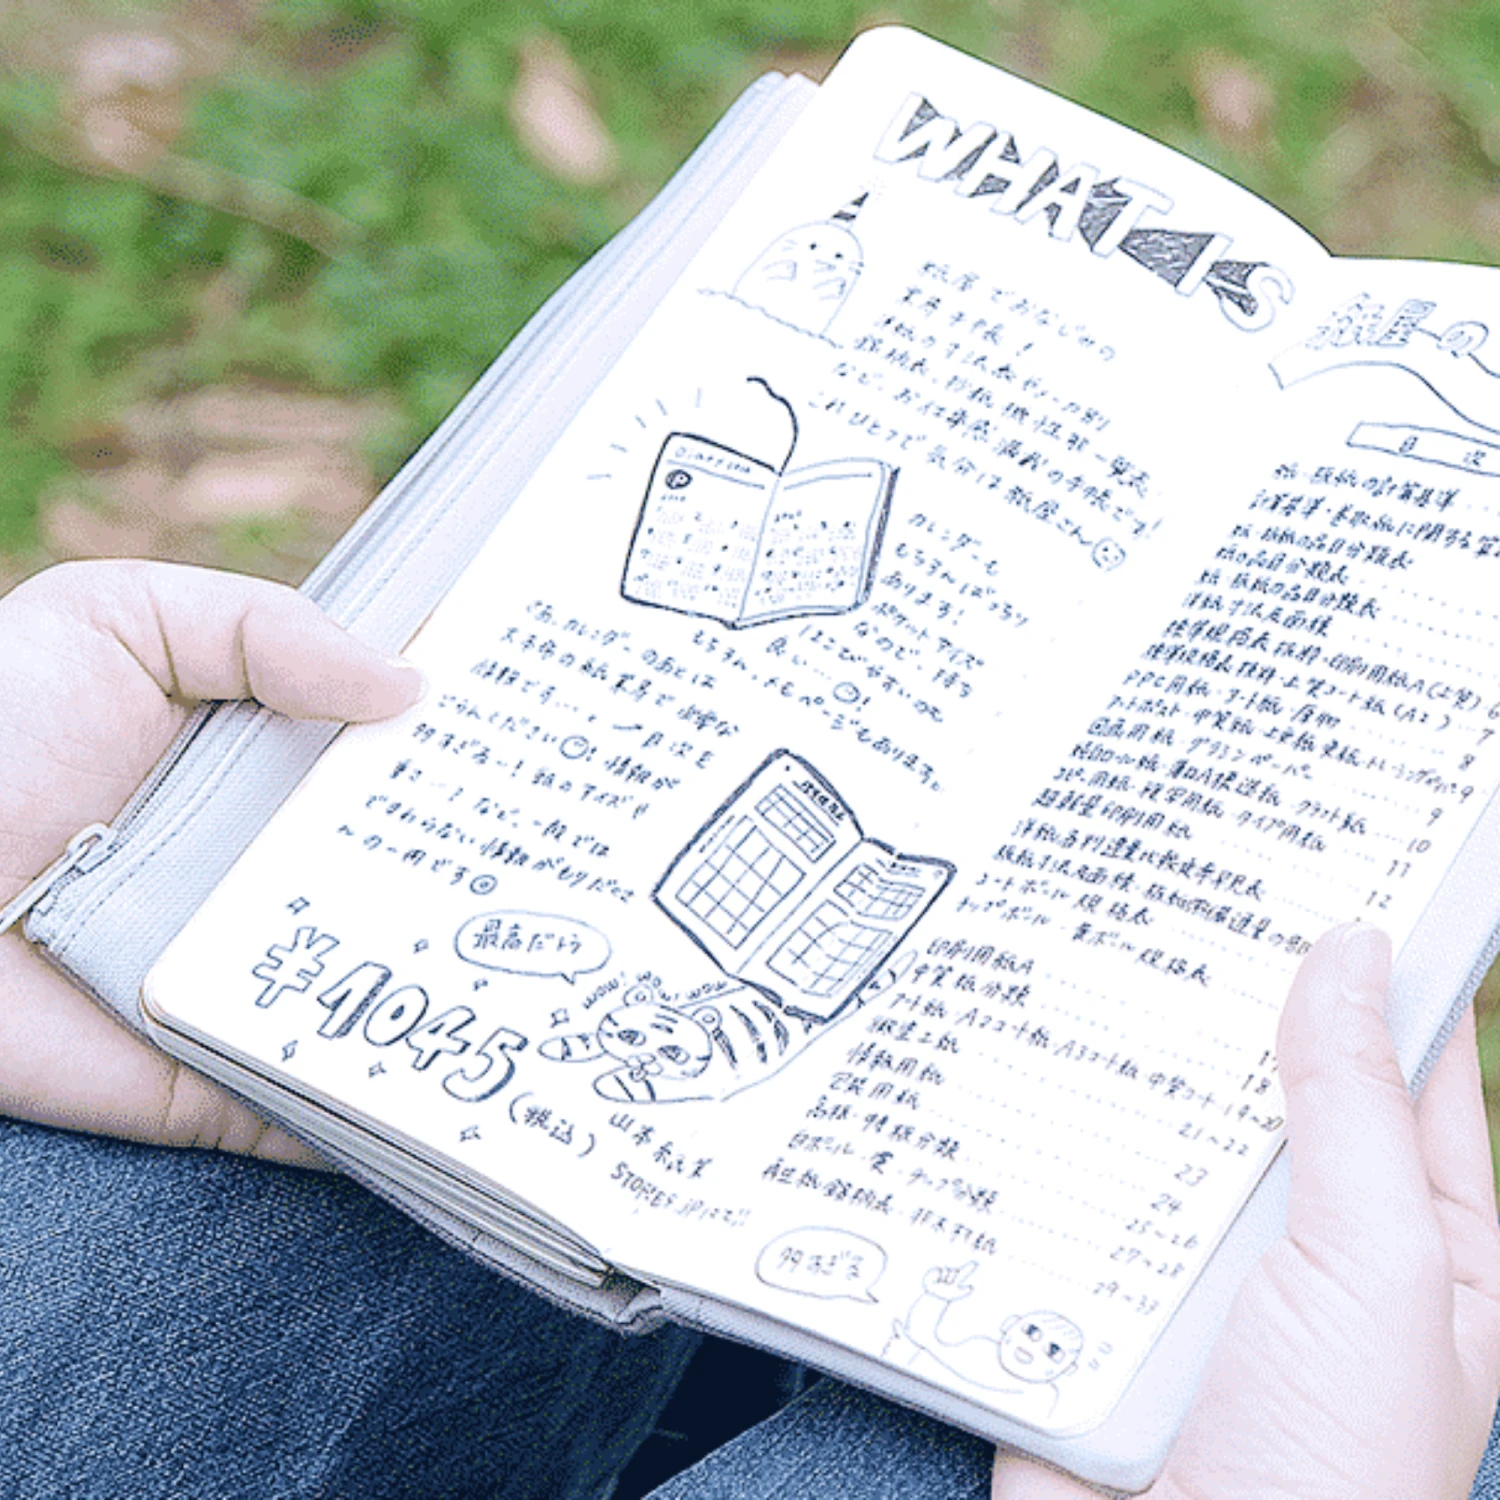 WHAT IS
紙屋でおなじみの
業界手帳!
洋紙の寸法表や
銘柄表、抄紙機性能一覧表
など、お仕事感満載の手帳です!
これひとつで気分は紙屋さん
カレンダーも
もちろんばっちり
あります!
ポケットサイズ
なので、持ち
はこびやすいのも
良い…!
もちろん、メモページもあります。
さあ、カレンダーのあとは
情報です… 目次を
ごらんください! 情報が
多すぎる〜! 紙のサイズや
重さ…! など、一般では
の一冊です
最高だろう
wow! wow! wow
¥1045
(税込)
山本紙業
STORES.jpにて!!
紙屋の
目 次
紙・板紙の計算基準
紙・板紙の品目分類表
紙の品目分類表
紙・板紙の品目分類表
洋紙寸法及面積
標準規格表 版料・印刷用紙A(上質) 6
標準規格表 版料・上質コート紙(A2) 7
PPC用紙・ノート紙・ 8
アートポスト・中質紙・上更紙 更紙・トレーシングペーパー 9
図画用紙・グラシンペーパー 9
純白ロール紙・薄口A模造紙・クラフト紙 10
コピー用紙・複写用紙・タイプ用紙 11
超軽量印刷用紙 12
洋紙各判連量比較更率早見表
コートボール規格表
チップボール・黄ボール規格表
印刷用紙A 17
中質紙分類 18
アート紙・A2コート紙・A3コート紙・中質コート 19〜20
微塗工紙 21〜22
情報用紙 23
包装用紙 24
高板・特板分類 25〜26
白ボール・黄・チップ分類 27〜28
再生紙銘柄表・非木材紙 29〜33
多すぎる